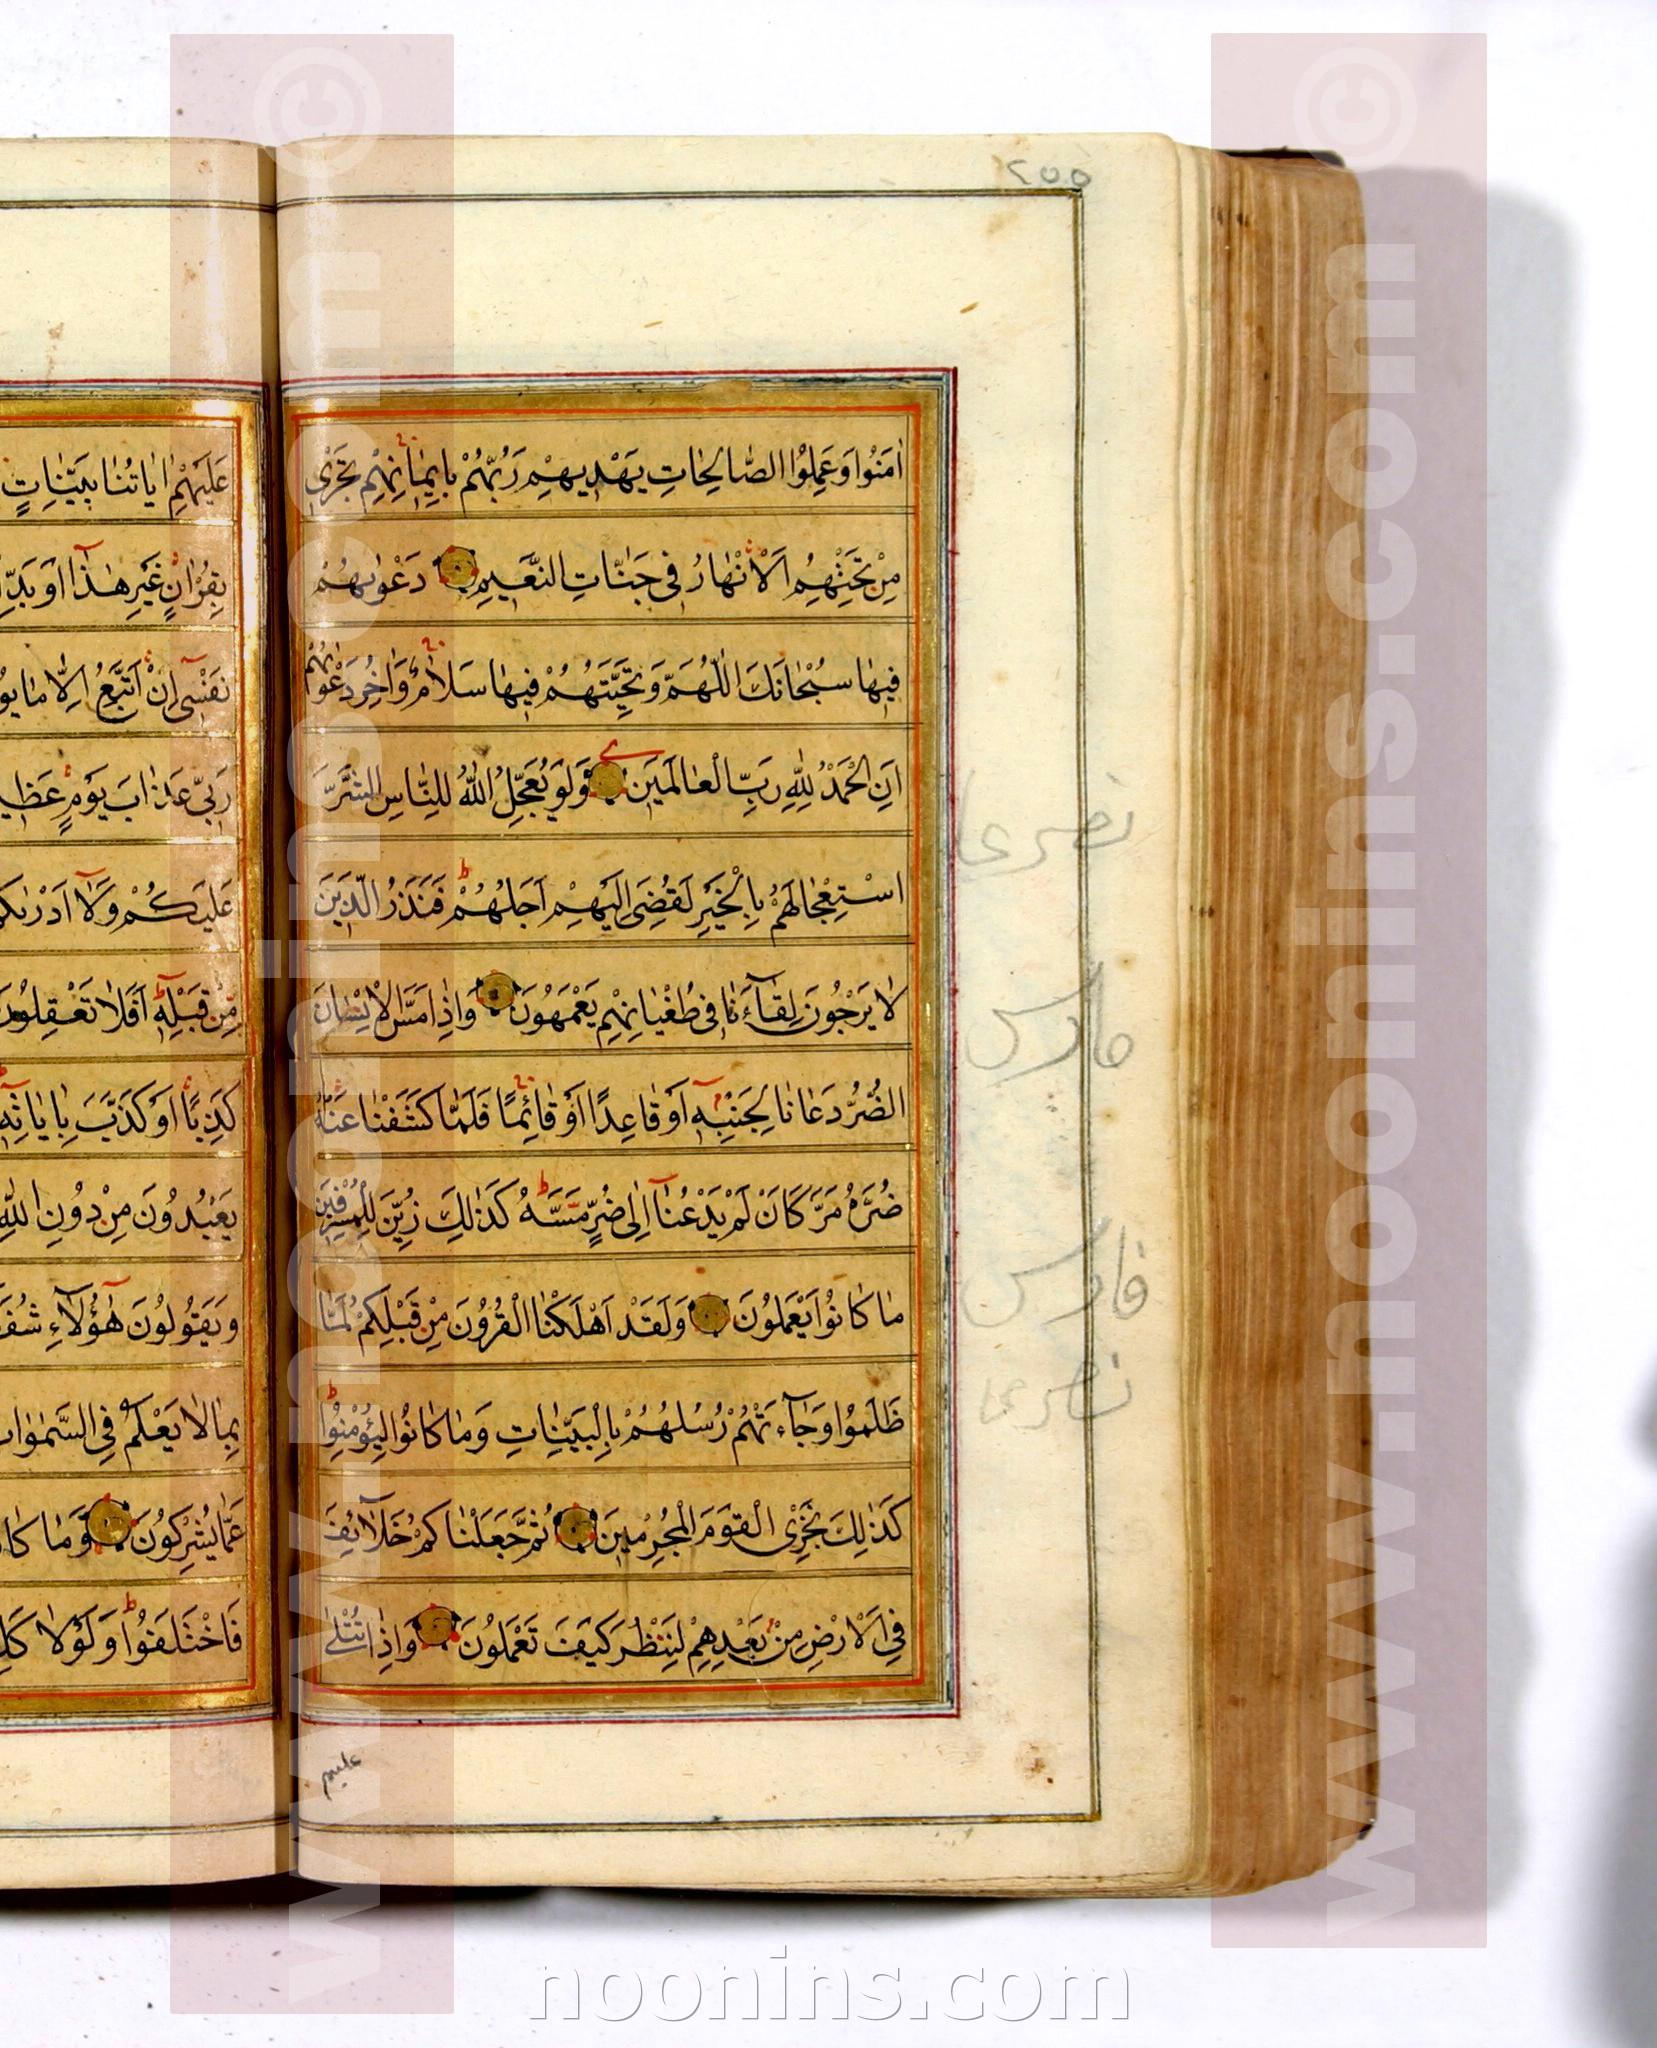 ٢٥٥
اٰمَنُوا وَعَمِلُوا الصّٰالِحٰاتِ يَهْدِيهِمْ رَبُّهُمْ بِاِيمٰانِهِمْ تَجْرٖى
مِنْ تَحْتِهِمُ الْاَنْهٰارُ فٖى جَنّٰاتِ النَّعٖيمِ دَعْوٰيهُمْ
فٖيهٰا سُبْحٰانَكَ اللّٰهُمَّ وَتَحِيَّتُهُمْ فٖيهٰا سَلٰامٌ وَاٰخِرُ دَعْوٰيهُمْ
اَنِ الْحَمْدُ لِلّٰهِ رَبِّ الْعٰالَمٖينَ وَلَوْ يُعَجِّلُ اللّٰهُ لِلنّٰاسِ الشَّرَّ
اسْتِعْجٰالَهُمْ بِالْخَيْرِ لَقُضِىَ اِلَيْهِمْ اَجَلُهُمْ فَنَذَرُ الَّذٖينَ
لٰا يَرْجُونَ لِقٰٓاءَنٰا فٖى طُغْيٰانِهِمْ يَعْمَهُونَ وَاِذٰا مَسَّ الْاِنْسٰانَ
الضُّرُّ دَعٰانٰا لِجَنْبِهٖٓ اَوْ قٰاعِدًا اَوْ قٰائِمًا فَلَمّٰا كَشَفْنٰا عَنْهُ
ضُرَّهُ مَرَّ كَاَنْ لَمْ يَدْعُنٰٓا اِلٰى ضُرٍّ مَسَّهُ كَذٰلِكَ زُيِّنَ لِلْمُسْرِفٖينَ
مٰا كٰانُوا يَعْمَلُونَ وَلَقَدْ اَهْلَكْنَا الْقُرُونَ مِنْ قَبْلِكُمْ لَمّٰا
ظَلَمُوا وَجٰٓاءَتْهُمْ رُسُلُهُمْ بِالْبَيِّنٰاتِ وَمٰا كٰانُوا لِيُؤْمِنُوا
كَذٰلِكَ نَجْزِى الْقَوْمَ الْمُجْرِمٖينَ ثُمَّ جَعَلْنٰاكُمْ خَلٰٓائِفَ
فِى الْاَرْضِ مِنْ بَعْدِهِمْ لِنَنْظُرَ كَيْفَ تَعْمَلُونَ وَاِذٰا تُتْلٰى
عليهم
عَلَيْهِمْ اٰيٰاتُنٰا بَيِّنٰاتٍ
بِقُرْاٰنٍ غَيْرِ هٰذٰٓا اَوْ
نَفْسٖٓى اِنْ اَتَّبِعُ اِلّٰا مٰا
رَبّٖى عَذٰابَ يَوْمٍ
عَلَيْكُمْ وَلٰٓا اَدْرٰيكُمْ
مِنْ قَبْلِهٖٓ اَفَلٰا تَعْقِلُونَ
كَذِبًا اَوْ كَذَّبَ بِاٰيٰاتِهٖٓ
يَعْبُدُونَ مِنْ دُونِ اللّٰهِ
وَيَقُولُونَ هٰٓؤُلٰٓاءِ
بِمٰا لٰا يَعْلَمُ فِى السَّمٰوٰاتِ
عَمّٰا يُشْرِكُونَ وَمٰا كٰانَ
فَاخْتَلَفُوا وَلَوْلٰا
فارس
www.noonins.com ©
www.noonins.com ©
noonins.com